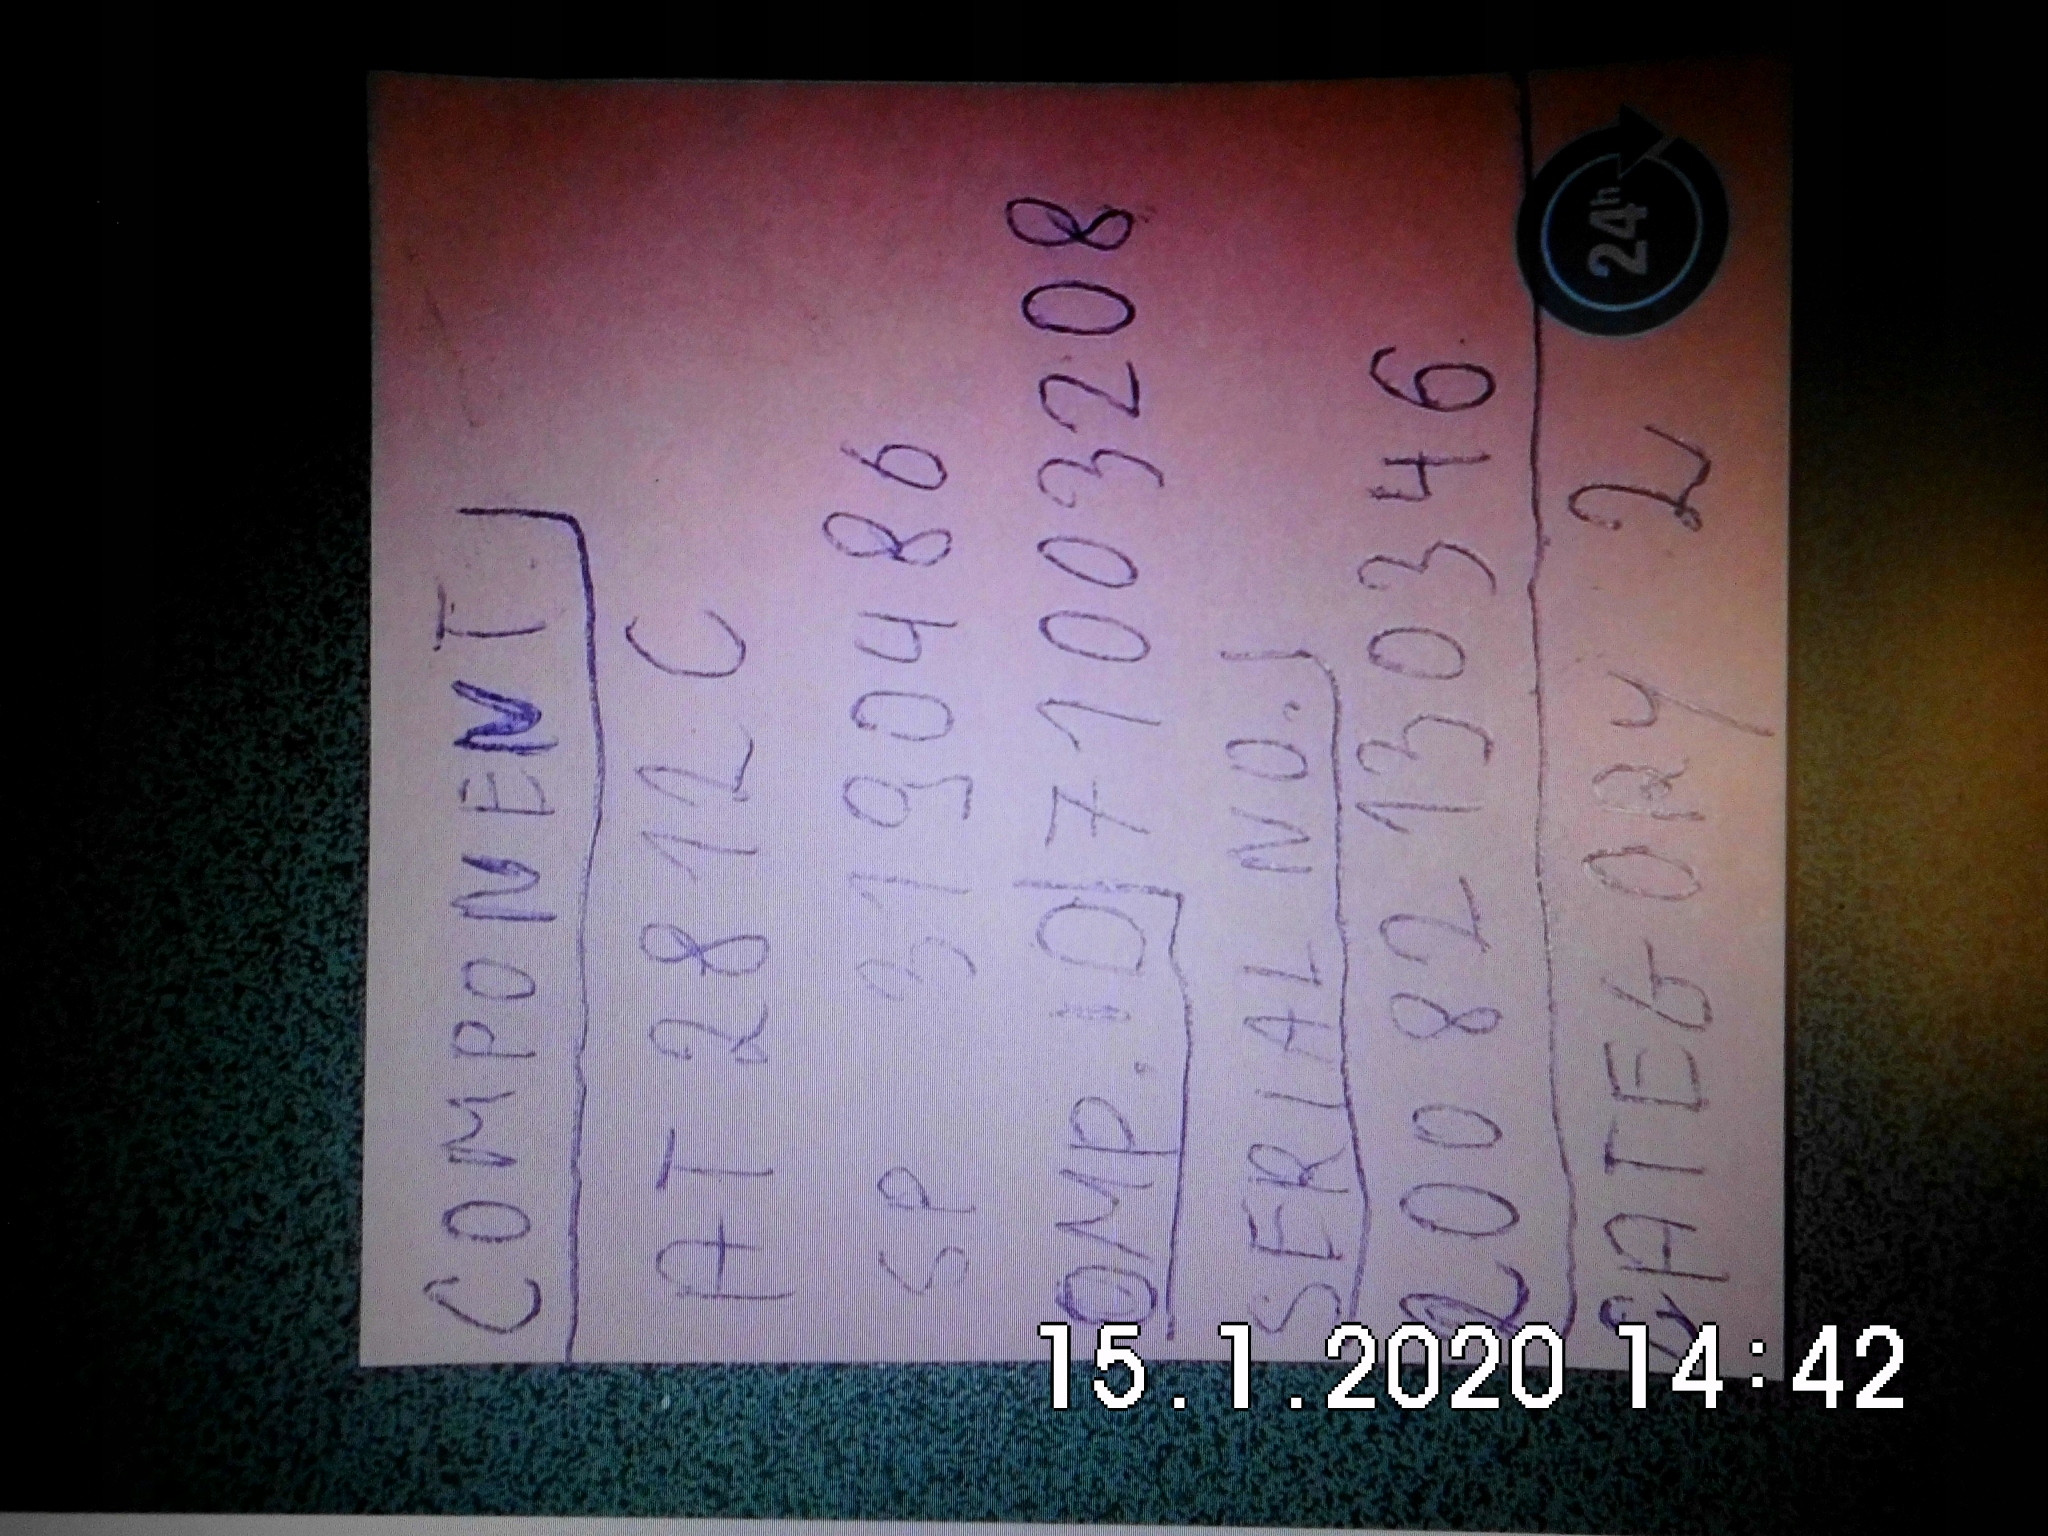 COMPONENT
AT 2812C
SP 3190486
OMP. ID 71003208
SERIAL NO.
20082130346
CATEGORY 2
24h
15.1.2020 14:42